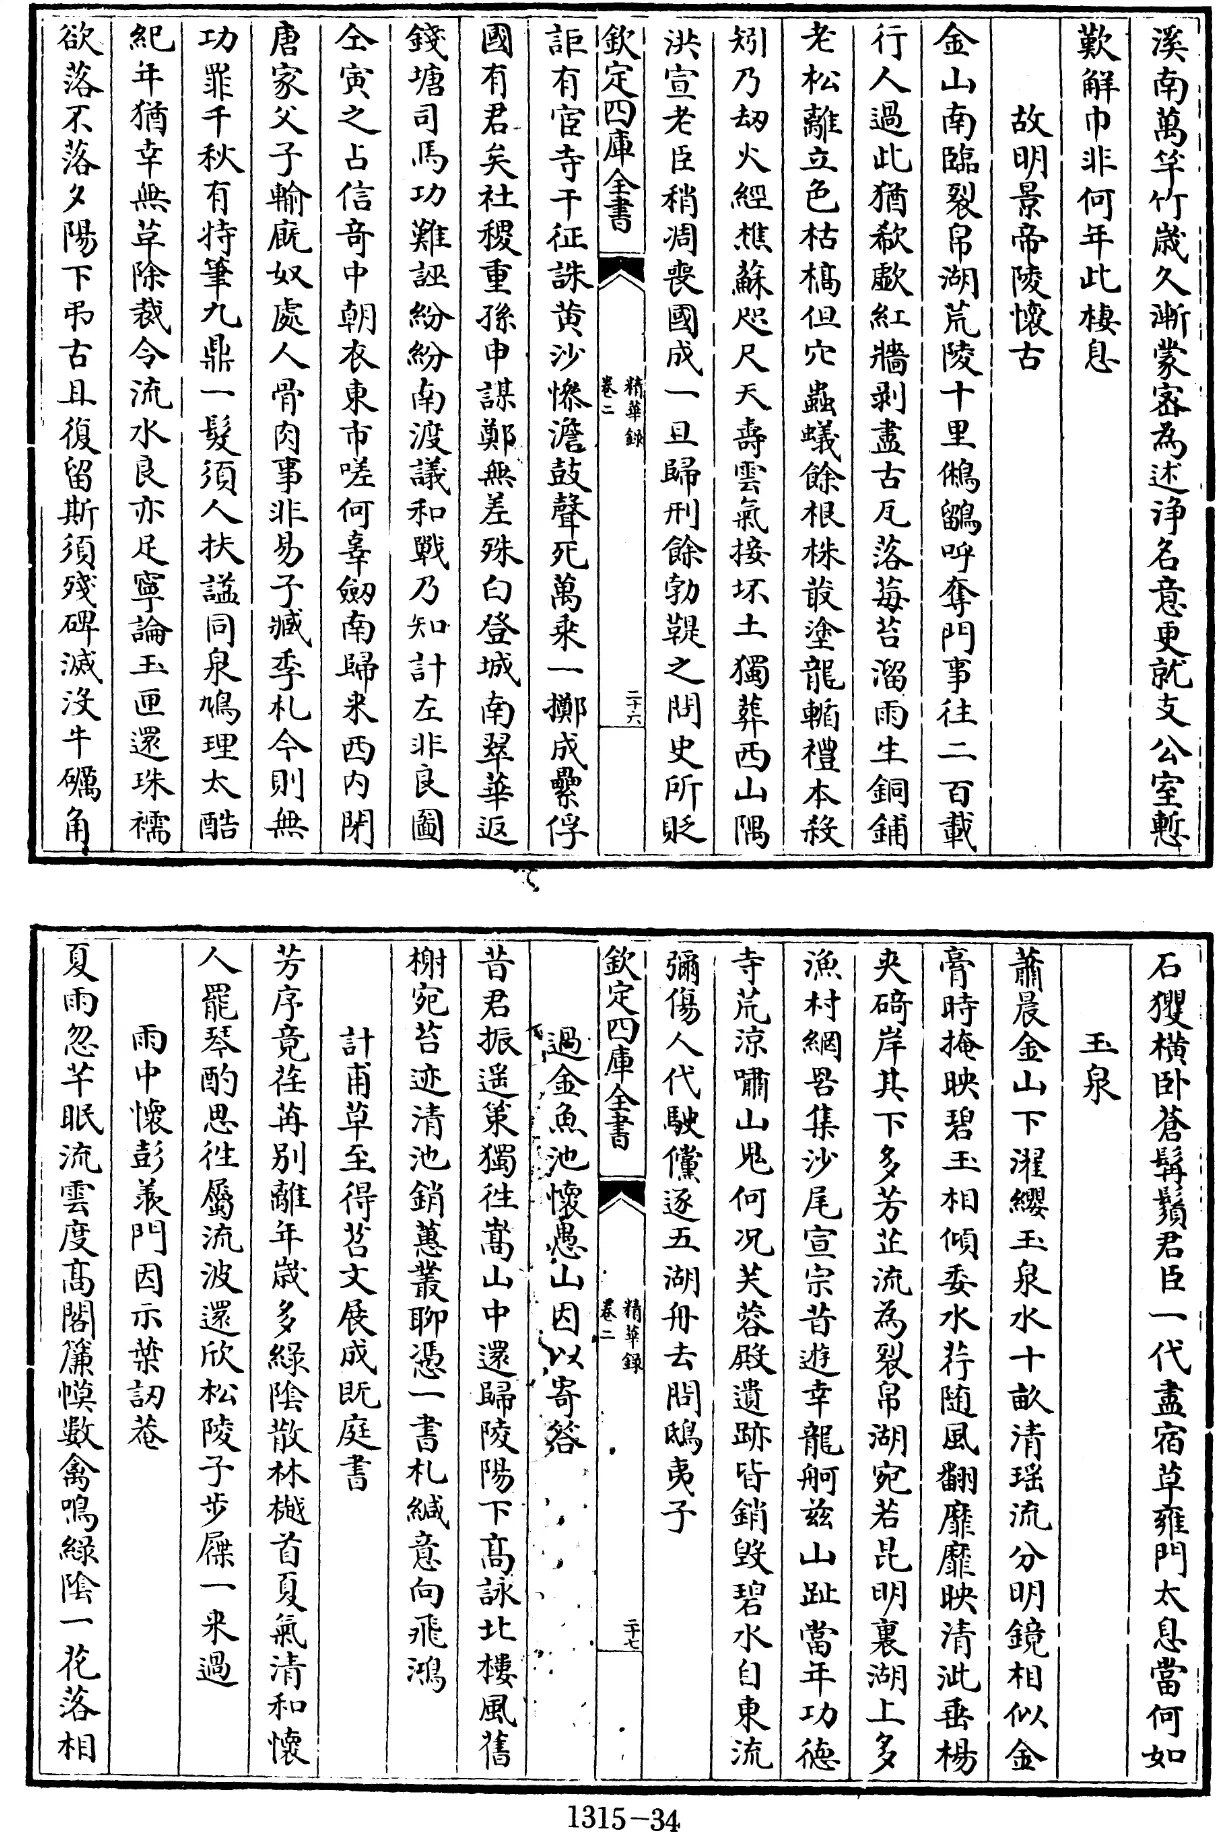 溪南萬竿竹歳久漸蒙宻為述浄名意更就支公室慙
歎解巾非何年此棲息
故明景帝陵懷古
金山南臨裂帛湖荒陵十里鵂鶹呼奪門事往二百載
行人過此猶欷歔紅牆剥盡古瓦落莓苔溜雨生銅鋪
老松離立色枯槁但穴蟲蟻餘根株菆塗龍輴禮本殺
矧乃刼火經樵蘇咫尺天壽雲氣接坏土獨葬西山隅
洪宣老臣稍凋喪國成一旦歸刑餘勃鞮之問史所貶
欽定四庫全書
精華録
卷二
二十六
詎有宦寺干征誅黄沙慘澹鼓聲死萬乘一擲成纍俘
國有君矣社稷重孫申謀鄭無差殊白登城南翠華返
錢塘司馬功難誣紛紛南渡議和戰乃知計左非良圖
仝寅之占信竒中朝衣東市嗟何辜劔南歸來西内閉
唐家父子輸廐奴處人骨肉事非易子臧季札今則無
功罪千秋有特筆九鼎一髮須人扶諡同泉鳩理太酷
紀年猶幸無草除裁令流水良亦足寧論玉匣還珠襦
欲落不落夕陽下弔古且復留斯須殘碑滅没牛礪角
石玃横卧蒼髯鬚君臣一代盡宿草雍門太息當何如
玉泉
蕭晨金山下濯纓玉泉水十畝清瑶流分明鏡相似金
膏時掩映碧玉相傾委水荇随風翻靡靡映清泚垂楊
夾碕岸其下多芳芷流為裂帛湖宛若昆明裏湖上多
漁村網罟集沙尾宣宗昔遊幸龍舸兹山趾當年功徳
寺荒凉嘯山鬼何况芙蓉殿遺跡皆銷毁碧水自東流
彌傷人代駛儻逐五湖舟去問鴟夷子
欽定四庫全書
精華録
卷二
二十七
過金魚池懷愚山因以寄答
昔君振遥策獨往嵩山中還歸陵陽下高詠北樓風舊
榭宛苔迹清池銷蕙叢聊憑一書札緘意向飛鴻
計甫草至得苕文展成既庭書
芳序竟荏苒别離年歳多緑陰散林樾首夏氣清和懷
人罷琴酌思往屬流波還欣松陵子步屧一來過
雨中懷彭羡門因示葉訒菴
夏雨忽芊眠流雲度高閣簾幙數禽鳴緑陰一花落相
1315-34